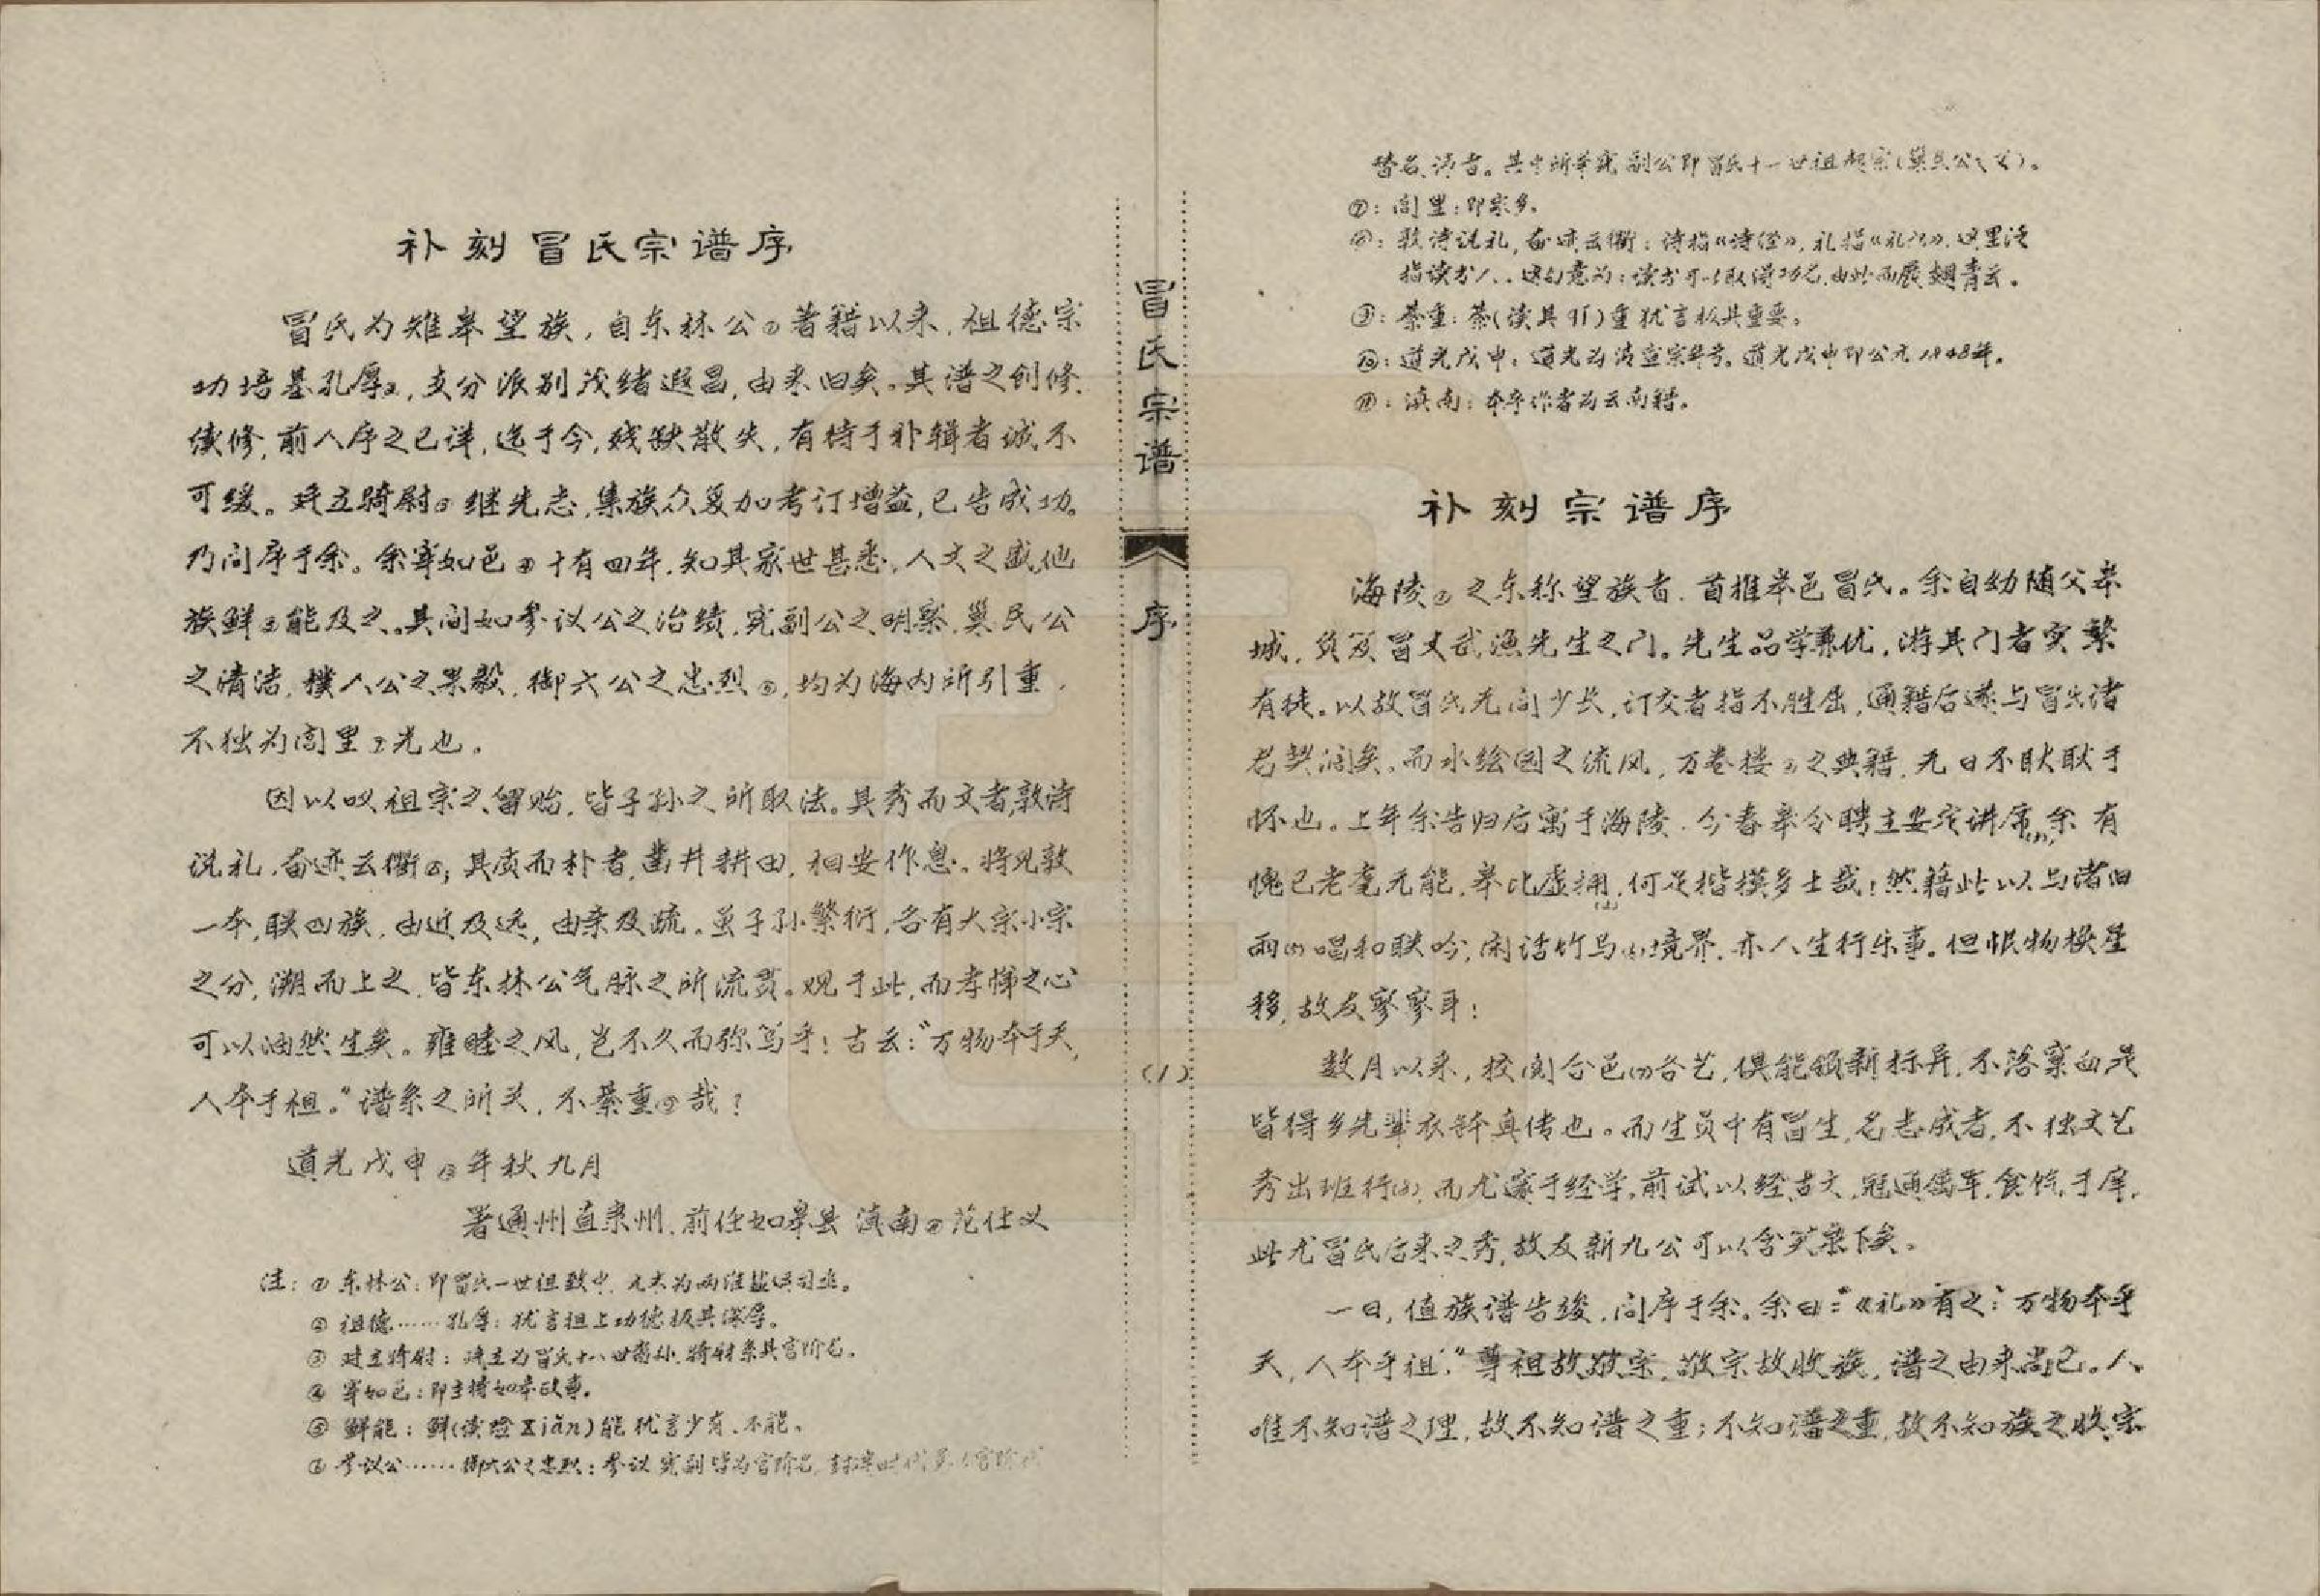 补刻冒氏宗谱序
冒氏为雉皋望族,自东林公①著籍以来,祖德宗
功培基孔厚②,支分派别茂绪遐昌,由来旧矣。其谱之创修、
续修,前人序之已详,迄于今,残缺散失,有待于补辑者诚不
可缓。建立骑尉③继先志,集族众复加考订增益,已告成功。
乃问序于余。余宰如邑④十有四年,知其家世甚悉,人文之盛,他
族鲜⑤能及之。其间如参议公之治绩,宪副公之明察,巢民公
之清洁,樸人公之果毅,御六公之忠烈⑥,均为海内所引重,
不独为闾里⑦光也。
因以叹祖宗之留贻,皆子孙之所取法。其秀而文者,敦诗
说礼,奋迹云衢⑧;其质而朴者,凿井耕田,相安作息。将见敦
一本,联四族,由近及远,由亲及疏。虽子孙繁衍,各有大宗小宗
之分,溯而上之,皆东林公气脉之所流贯。观于此,而孝悌之心
可以油然生矣。雍睦之风,岂不久而弥笃乎!古云:“万物本于天,
人本于祖。”谱系之所关,不綦重⑨哉?
道光戊申⑩年秋九月
署通州直隶州、前任如皋县 滇南⑪范仕义
注:①东林公:即冒氏一世祖致中,元末为两淮盐运司丞。
②祖德……孔厚:犹言祖上功德极其深厚。
③建立骑尉:建立为冒氏十八世裔孙,骑尉系其官阶名。
④宰如邑:即主持如皋政事。
⑤鲜能:鲜(读险Xiǎn)能犹言少有、不能。
⑥参议公……御六公之忠烈:参议、宪副皆为官阶名,封建时代
冒氏宗谱
序
(1)
替名、讳言。其中所举宪副公即冒氏十一世祖起宗(巢民公之父)。
⑦:闾里:即家乡。
⑧:敦诗说礼,奋迹云衢:诗指《诗经》,礼指《礼记》,这里泛
指读书人。这句意为:读书可以取得功名,由此而展翅青云。
⑨:綦重:綦(读其qí)重犹言极其重要。
⑩:道光戊申:道光为清宣宗年号。道光戊申即公元1848年。
⑪:滇南:本序作者为云南籍。
补刻宗谱序
海陵①之东称望族者,首推皋邑冒氏。余自幼随父皋
城,负笈冒丈武渔先生之门。先生品学兼优,游其门者实繁
有徒。以故冒氏无问少长,订交者指不胜屈,通籍后遂与冒氏诸
君契阔矣。而水绘园之流风,万卷楼②之典籍,无日不耿耿于
怀也。上年余告归后寓于海陵,今春皋令聘主安定讲席,余有
愧已老耄无能,皋比虚拥,何足楷模多士哉!然藉此以与诸旧
雨唱和联吟,闲话竹马境界,亦人生行乐事。但恨物换星
移,故友寥寥耳!
数月以来,校阅合邑各艺,俱能领新标异,不落窠臼,是
皆得乡先辈衣钵真传也。而生员中有冒生,名志成者,不独文艺
秀出班行,而尤邃于经学,前试以经古文,冠通属军,食饩于庠,
此尤冒氏后来之秀,故友新九公可以含笑泉下矣。
一日,值族谱告竣,问序于余。余曰:“《礼》有之:万物本乎
天,人本乎祖。”尊祖故敬宗,敬宗故收族,谱之由来尚已。人
唯不知谱之理,故不知谱之重;不知谱之重,故不知族之收、宗